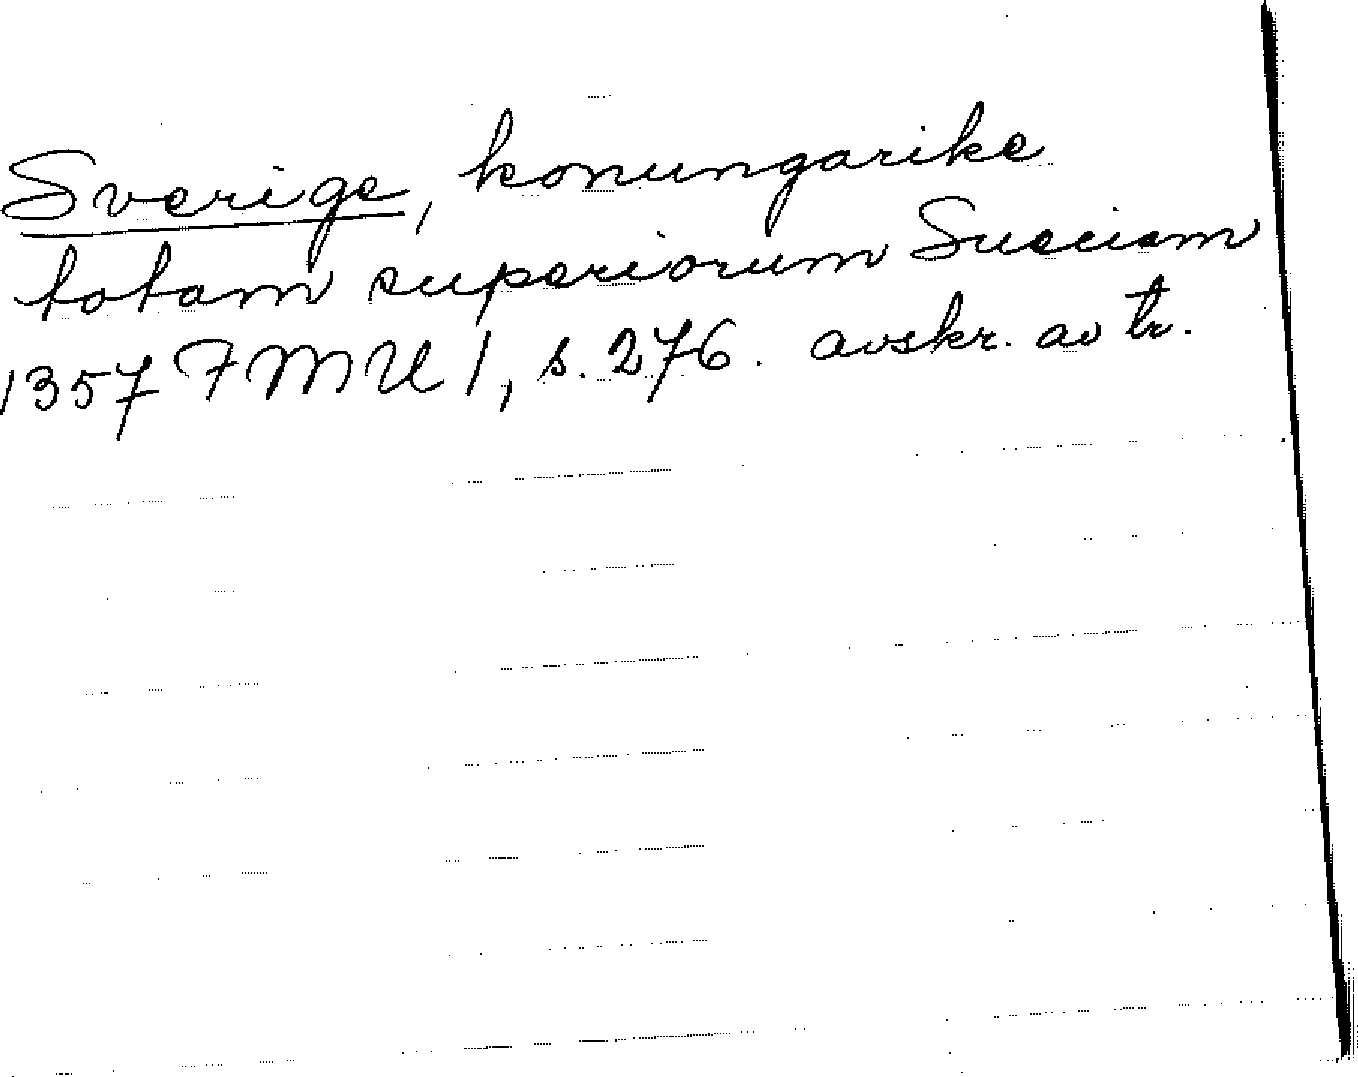 Sverige, konungarike
totam superiorum Sueciam
1357 FMU 1, s. 276. avskr. av tr.